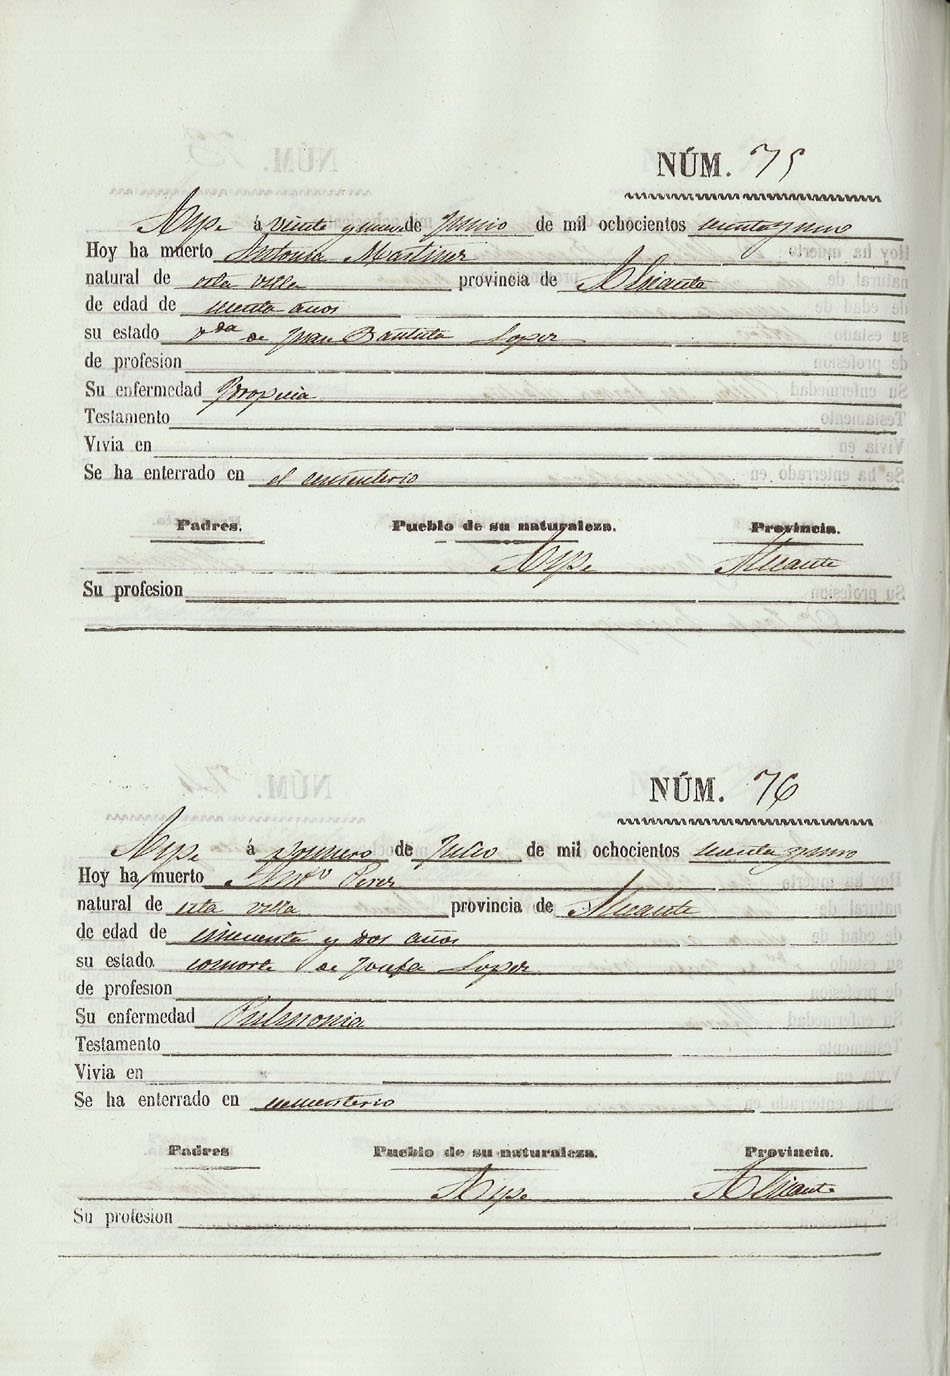 NÚM. 75
Aspe á veinte y nueve de Junio de mil ochocientos sesenta y uno
Hoy ha muerto Antonia Martinez
natural de esta villa provincia de Alicante
de edad de años
su estado vda de Juan Bautista Lopez
de profesion
Su enfermedad
Testamento
Vivia en
Se ha enterrado en el cementerio
Padres. Pueblo de su naturaleza. Provincia.
Aspe Alicante
Su profesion
NÚM. 76
Aspe á primero de Julio de mil ochocientos sesenta y uno
Hoy ha muerto Perez
natural de esta villa provincia de Alicante
de edad de cincuenta y dos años
su estado consorte de Josefa Lopez
de profesion
Su enfermedad Pulmonia
Testamento
Vivia en
Se ha enterrado en cementerio
Padres Pueblo de su naturaleza. Provincia.
Aspe Alicante
Su profesion